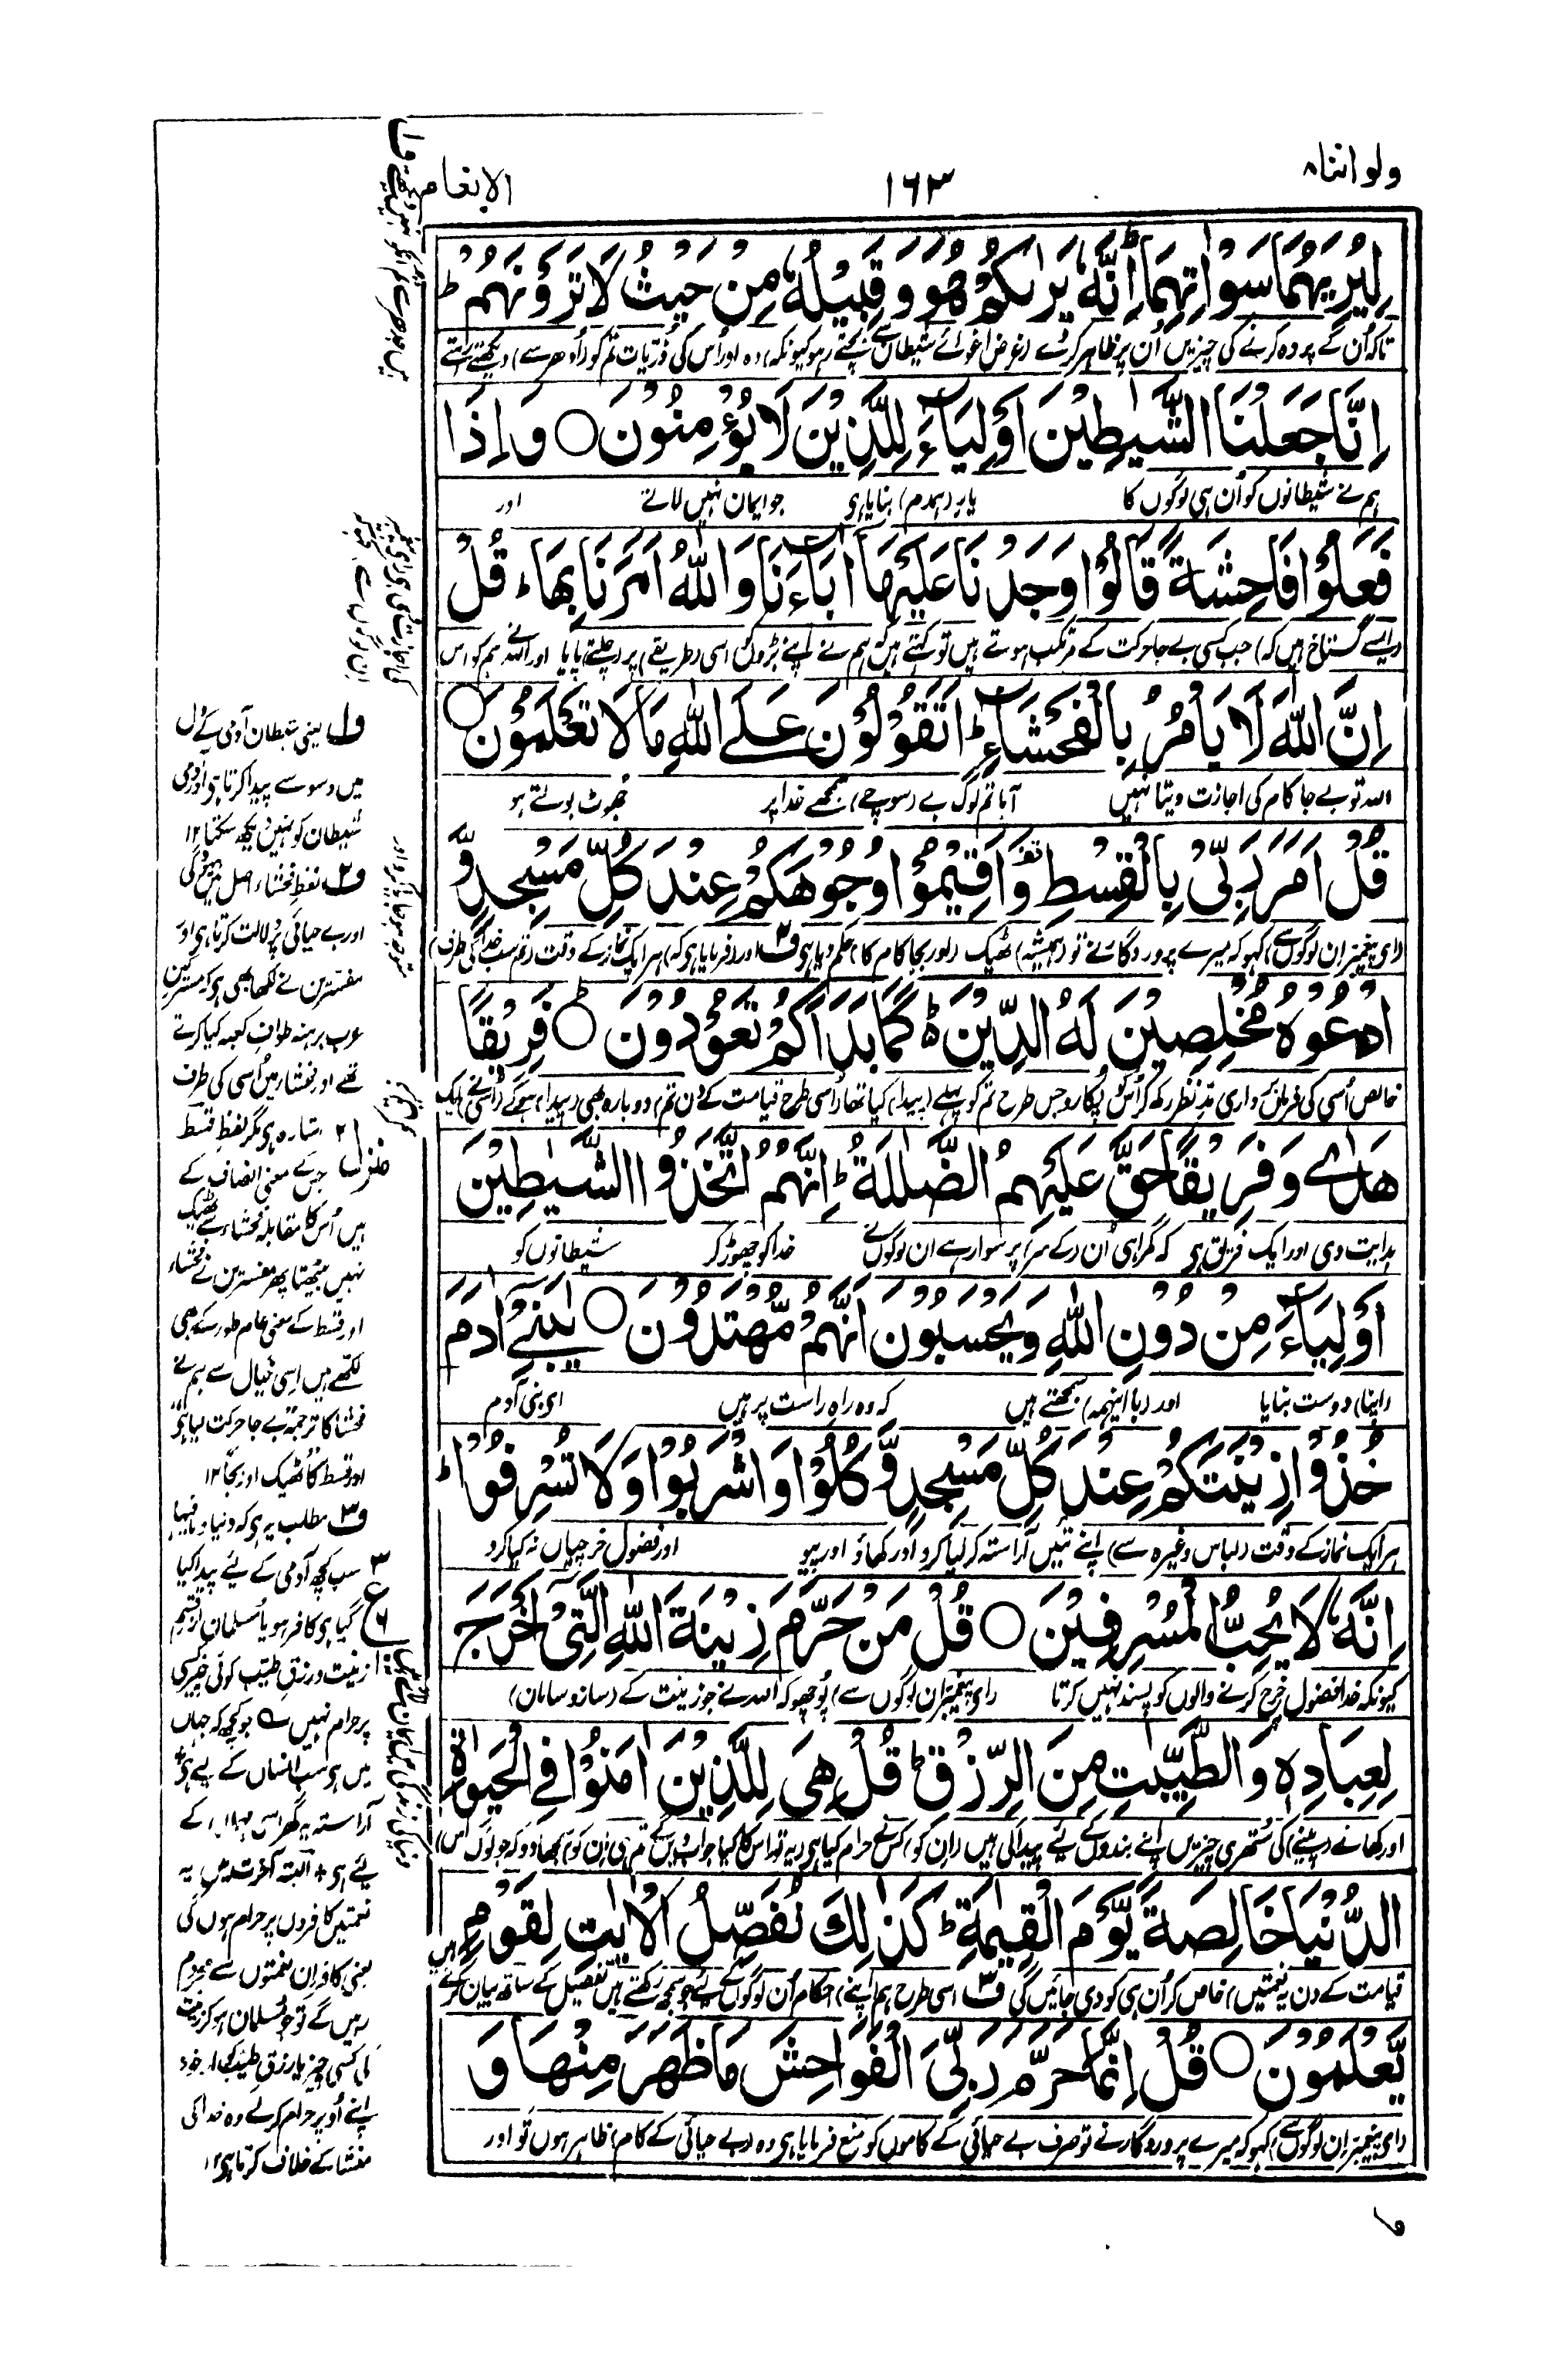 ولو اننا ۸
۱۶۳
الانعام
لِيُرِيَهُمَا سَوْاٰتِهِمَا ؕ اِنَّهٗ يَرٰىكُمْ هُوَ وَقَبِيْلُهٗ مِنْ حَيْثُ لَا تَرَوْنَهُمْ ؕ
تاکہ اُن کے پردہ کرنے کی چیزیں اُن پر ظاہر کردے (غرض اغوائے شیطان سے بچتے رہو کیونکہ) وہ اور اُس کی ذُرّیات تم کو (اُدھر سے) دیکھتے رہتے
اِنَّا جَعَلْنَا الشَّيٰطِيْنَ اَوْلِيَآءَ لِلَّذِيْنَ لَا يُؤْمِنُوْنَ ○ وَاِذَا
ہم نے شیطانوں کو اُن ہی لوگوں کا یار (ہمدم) بنایا ہی جو ایمان نہیں لاتے اور
فَعَلُوْا فَاحِشَةً قَالُوْا وَجَدْنَا عَلَيْهَآ اٰبَآءَنَا وَاللّٰهُ اَمَرَنَا بِهَا ؕ قُلْ
(ایسے گستاخ ہیں کہ) جب کسی بے جا حرکت کے مرتکب ہوتے ہیں تو کہتے ہیں کہ ہم نے اپنے بڑوں کو اسی (طریقے) پر (چلتے) پایا اور اللہ نے ہم کو اس
اِنَّ اللّٰهَ لَا يَاْمُرُ بِالْفَحْشَآءِ ؕ اَتَقُوْلُوْنَ عَلَى اللّٰهِ مَا لَا تَعْلَمُوْنَ ○
اللہ تو بے جا کام کی اجازت دیتا نہیں آیا تم لوگ بے (سوچے) سمجھے خدا پر جھوٹ بولتے ہو
قُلْ اَمَرَ رَبِّیْ بِالْقِسْطِ ۫ وَاَقِيْمُوْا وُجُوْهَكُمْ عِنْدَ كُلِّ مَسْجِدٍ وَّ
(ای پیغمبر ان لوگوں سے) کہو کہ میرے پروردگار نے تو (ہمیشہ) ٹھیک (اور بجا کام کا) حکم دیا ہی ف۲ اور (فرمایا ہی کہ) ہر ایک نماز کے وقت (تم سب خدا کی طرف)
ادْعُوْهُ مُخْلِصِيْنَ لَهُ الدِّيْنَ ؕ كَمَا بَدَاَكُمْ تَعُوْدُوْنَ ○ فَرِيْقًا
خالص اُسی کی فرماں برداری مدِّ نظر رکھ کر اُس کو پکارو جس طرح تم کو پہلے (پیدا) کیا تھا (اُسی طرح قیامت کے دن تم) دوبارہ بھی (پیدا) ہوگے (اُسی نے) ایک
هَدٰی وَفَرِيْقًا حَقَّ عَلَيْهِمُ الضَّلٰلَةُ ؕ اِنَّهُمُ اتَّخَذُوا الشَّيٰطِيْنَ
ہدایت دی اور ایک فریق ہی کہ گمراہی اُن (کے سر) پر سوار ہے ان لوگوں نے خدا کو چھوڑ کر شیطانوں کو
اَوْلِيَآءَ مِنْ دُوْنِ اللّٰهِ وَيَحْسَبُوْنَ اَنَّهُمْ مُّهْتَدُوْنَ ○ يٰبَنِیْٓ اٰدَمَ
(اپنا) دوست بنایا اور (با اینہمہ) سمجھتے ہیں کہ وہ راہِ راست پر ہیں ای بنی آدم
خُذُوْا زِيْنَتَكُمْ عِنْدَ كُلِّ مَسْجِدٍ وَّكُلُوْا وَاشْرَبُوْا وَلَا تُسْرِفُوْا ؕ
ہر ایک نماز کے وقت (لباس وغیرہ سے) اپنے تئیں آراستہ کر لیا کرو اور کھاؤ اور پیو اور فضول خرچیاں نہ کیا کرو
اِنَّهٗ لَا يُحِبُّ الْمُسْرِفِيْنَ ○ قُلْ مَنْ حَرَّمَ زِيْنَةَ اللّٰهِ الَّتِیْٓ اَخْرَجَ
کیونکہ خدا فضول خرچ کرنے والوں کو پسند نہیں کرتا (ای پیغمبر ان لوگوں سے) پوچھو کہ اللہ نے جو زینت کے (ساز و سامان)
لِعِبَادِهٖ وَالطَّيِّبٰتِ مِنَ الرِّزْقِ ؕ قُلْ هِیَ لِلَّذِيْنَ اٰمَنُوْا فِی الْحَيٰوةِ
اور کھانے (پینے) کی ستھری چیزیں اپنے بندوں کے لئے پیدا کی ہیں (ان کو) کس نے حرام کیا ہی
الدُّنْيَا خَالِصَةً يَّوْمَ الْقِيٰمَةِ ؕ كَذٰلِكَ نُفَصِّلُ الْاٰيٰتِ لِقَوْمٍ
قیامت کے دن (یہ نعمتیں) خاص کر اُن ہی کو دی جائیں گی ف۳ اسی طرح ہم (اپنے) احکام اُن لوگوں کے لئے جو سمجھ رکھتے ہیں تفصیل کے ساتھ بیان کرتے ہیں
يَّعْلَمُوْنَ ○ قُلْ اِنَّمَا حَرَّمَ رَبِّیَ الْفَوَاحِشَ مَا ظَهَرَ مِنْهَا وَ
(ای پیغمبر ان لوگوں سے) کہو کہ میرے پروردگار نے تو صرف بے حیائی کے کاموں کو منع فرمایا ہی وہ (بے حیائی کے کام) ظاہر ہوں تو اور
ف۱ یعنی شیطان آدمی کے دل
میں وسوسے پیدا کرتا ہی اور آدمی
شیطان کو نہیں دیکھ سکتا ۱۲
ف۲ لفظ فحشاء اصل میں
اور بے حیائی پر دلالت کرتا ہی اور
مفسّرین نے لکھا بھی ہی کہ مشرکینِ
عرب برہنہ طوافِ کعبہ کیا کرتے
تھے اور فحشاء میں اُسی کی طرف
اشارہ ہی مگر لفظِ قسط
جس کے معنی انصاف کے
ہیں اُس کا مقابلہ فحشاء سے ٹھیک
نہیں بیٹھتا پھر مفسّرین نے فحشاء
اور قسط کے معنی عام طور کے بھی
لکھے ہیں اسی خیال سے ہم نے
فحشا کا ترجمہ بے جا حرکت کیا ہی
اور قسط کا ٹھیک اور بجا ۱۲
ف۳ مطلب یہ ہی کہ دنیا و مافیہا
سب کچھ آدمی کے لئے پیدا کیا
گیا ہی کافر ہو یا مسلمان از قسمِ
زینت و رزقِ طیّب کوئی چیز کسی
پر حرام نہیں جو کچھ کہ جہاں
میں ہی سب انساں کے لیے ہی
آراستہ یہ گھر اسی مہماں کے
لئے ہی + البتہ آخرت میں یہ
نعمتیں کافروں پر حرام ہوں گی
یعنی کافر ان نعمتوں سے محروم
رہیں گے تو جو مسلمان ہو کر زینت
کی کسی چیز یا رزقِ طیّب کو از خود
اپنے اُوپر حرام کرلے وہ خدا کی
منشا کے خلاف کرتا ہی ۱۲
منزل ۲